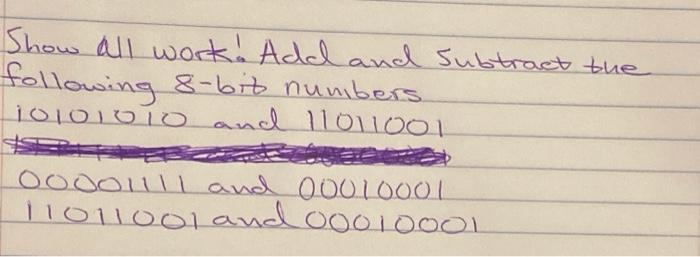 Show All work! Add and Subtract the
following 8-bit numbers
10101010 and 11011001
00001111 and 00010001
11011001 and 00010001